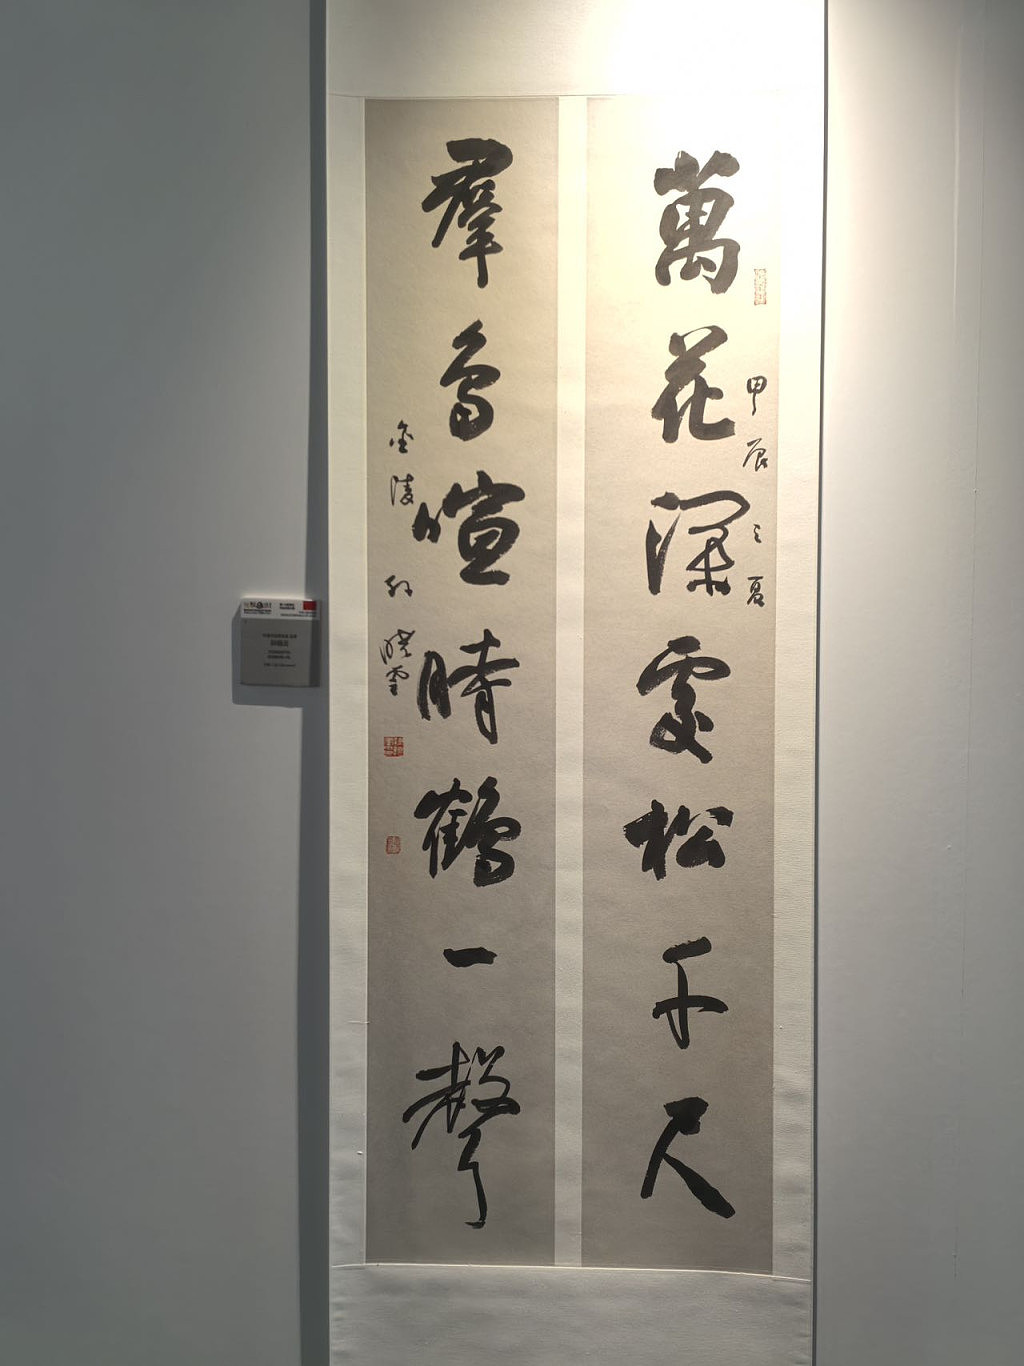 甲辰之夏
萬花深處松千尺
羣鳥喧時鶴一聲
金陵孫曉雲